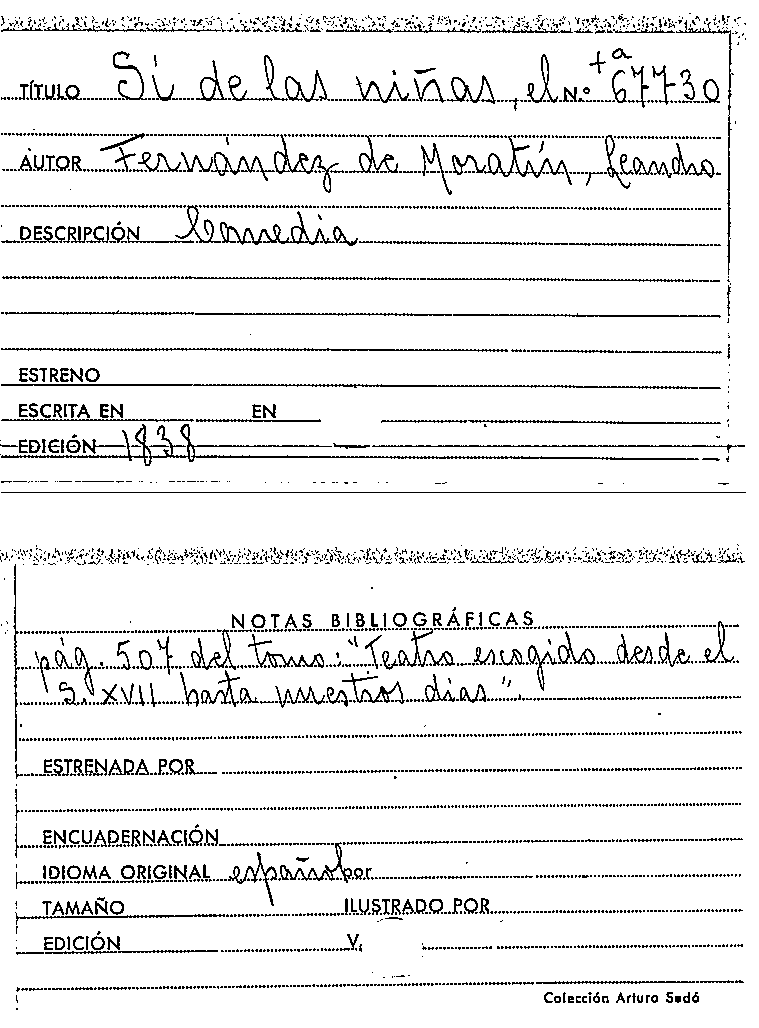 TÍTULO Sí de las niñas, el N.º ta 67730
AUTOR Fernández de Moratín, Leandro
DESCRIPCIÓN Comedia
ESTRENO
ESCRITA EN EN
EDICIÓN 1838
NOTAS BIBLIOGRÁFICAS
pág. 507 del tomo: "Teatro escogido desde el
S. XVII hasta nuestros dias".
ESTRENADA POR
ENCUADERNACIÓN
IDIOMA ORIGINAL español por
TAMAÑO ILUSTRADO POR
EDICIÓN V.
Colección Arturo Sedó